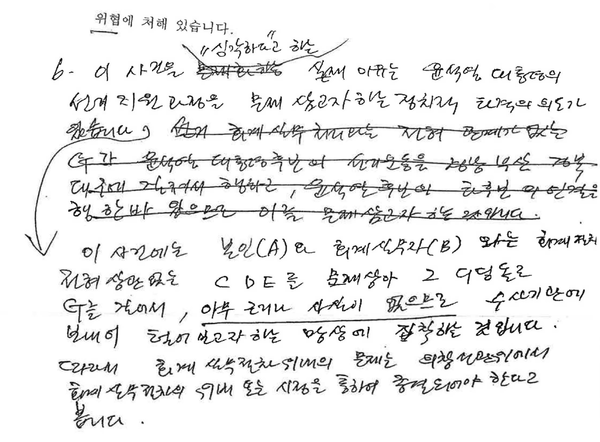 위협에 처해 있습니다.
"심각하다"고 하는
6- 이 사건을 실제 이유는 윤석열 대통령의
선거 지원 과정을 문제 삼고자 하는 정치적 타격의 의도가
있습니다, 선거 회계실무처리와는 전혀 관계가 없는
G가 윤석열 대통령후보의 선거운동을 경북
대구에 행하고, 윤석열후보와 타후보의 연결을
행한바 있으므로 이를 문제삼고자 하는 것입니다.
이 사건에는 본인(A)와 회계실무자(B) 와는 회계절차
전혀 상관없는 CDE를 문제삼아 그 디딤돌로
G를 걸어서, 아무 근거나 사실이 없으므로 수사기관에
보내어 털어보고자 하는 망상에 집착하는 것입니다.
따라서 회계 실무절차 위배의 문제는 의창선관위에서
회계실무절차의 위배 또는 시정을 통하여 종결되어야 한다고
봅니다.